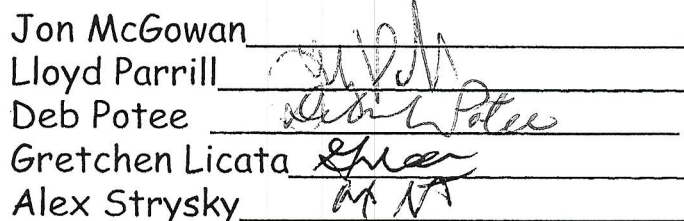 Jon McGowan
Lloyd Parrill
Deb Potee Potee
Gretchen Licata
Alex Strysky